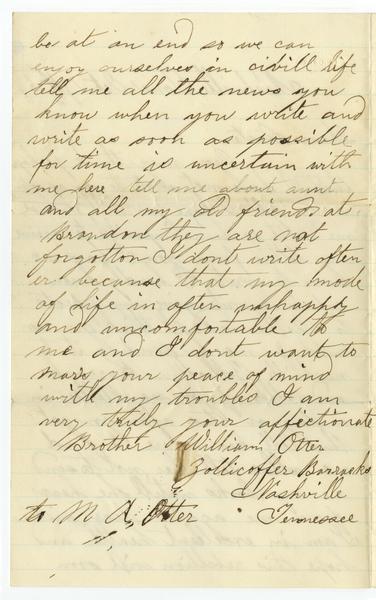 be at an end so we can
enjoy ourselves in civill life
tell me all the news you
know when you write and
write as soon as possible
for time is uncertain with
me here tell me about aunt
and all my old friends at
Brandon they are not
forgotton I dont write often
er because that my mode
of life in often unhappy
and uncomfortable to
me and I dont want to
mars your peace of mind
with my troubles I am
very truly your affectionate
Brother William Otter
Zollicoffer Barracks
Nashville
to M A Otter Tennessee